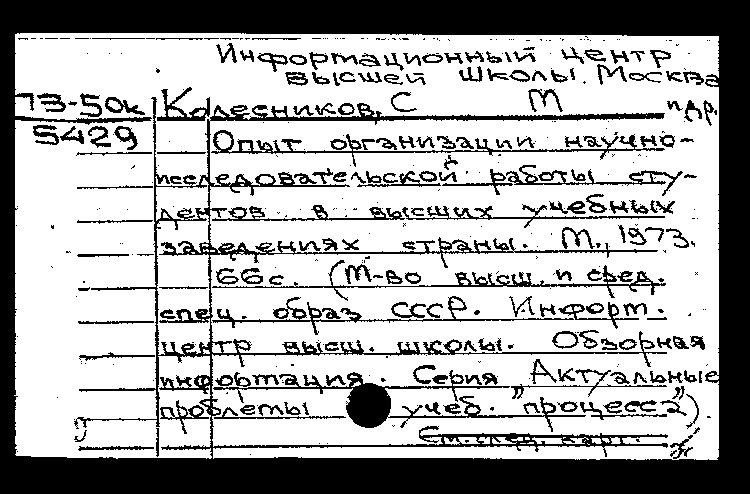 Информационный центр
высшей школы. Москва
73-50к Колесников, С М и др.
5429 Опыт организации научно-
исследовательской работы сту-
дентов в высших учебных
заведениях страны. М., 1973.
66 с. (М-во высш. и сред.
спец. образ СССР. Информ.
центр высш. школы. Обзорная
информация. Серия „Актуальные
проблемы учеб. "процесса")
См. след. карт.